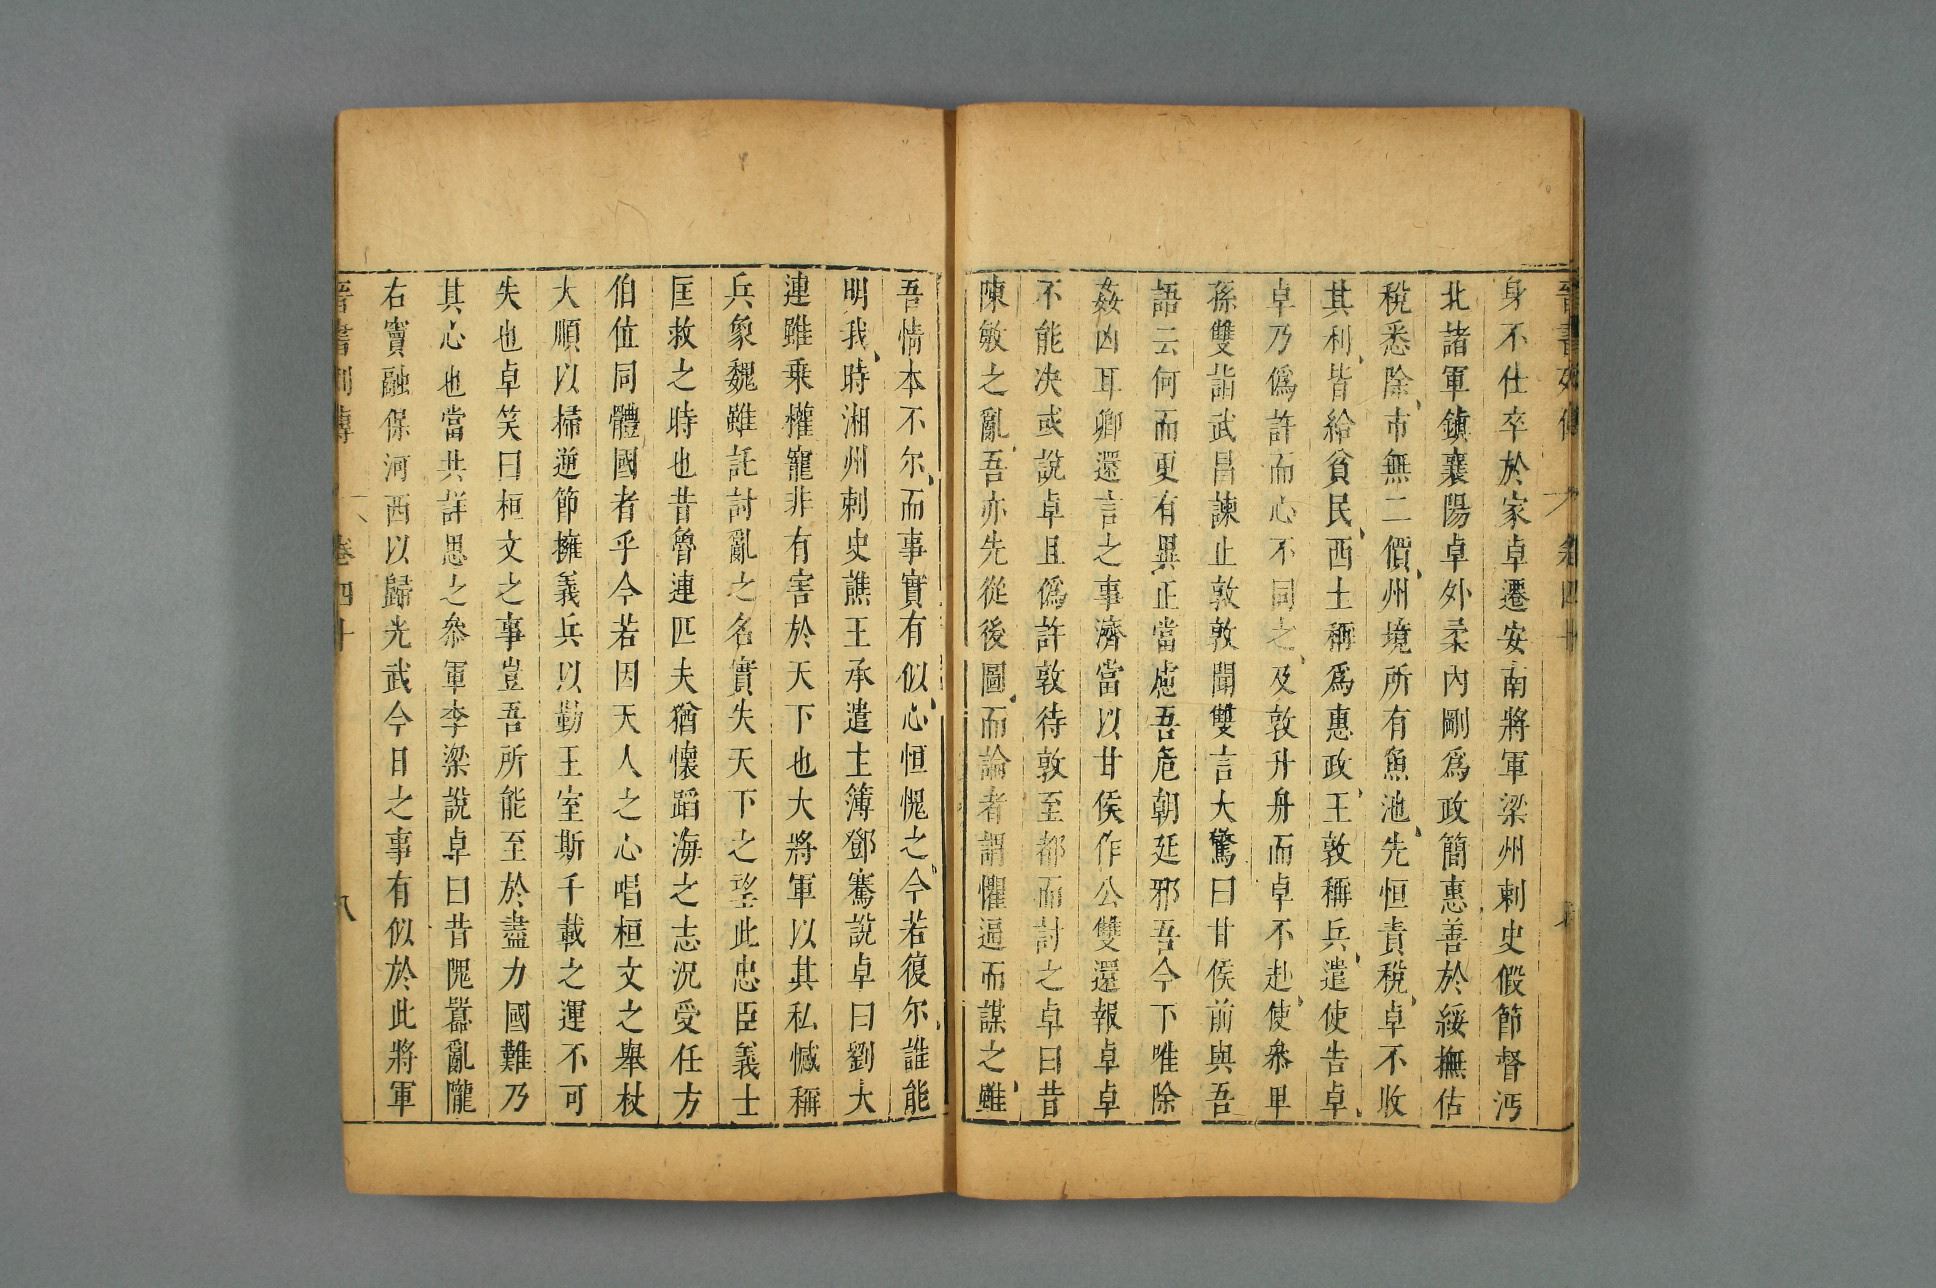 身不仕卒於家卓遷安南將軍梁州刺史假節督沔
北諸軍鎮襄陽卓外柔內剛爲政簡惠善於綏撫估
稅悉除、市無二價、州境所有魚池、先恒責稅、卓不收
其利、皆給貧民、西土稱爲惠政、王敦稱兵、遣使告卓、
卓乃僞許而心不同之、及敦升舟而卓不赴、使參軍
孫雙詣武昌諫止敦敦聞雙言大驚曰甘侯前與吾
語云何而更有異正當慮吾危朝廷邪吾今下唯除
姦凶耳卿還言之事濟當以甘侯作公雙還報卓卓
不能決或說卓且僞許敦待敦至都而討之卓曰昔
陳敏之亂、吾亦先從後圖、而論者謂懼逼而謀之、雖
吾情本不尒、而事實有似、心恒愧之、今若復尒、誰能
明我、時湘州刺史譙王承遣主簿鄧騫說卓曰劉大
連雖乗權寵非有害於天下也大將軍以其私憾稱
兵象魏雖託討亂之名實失天下之望此忠臣義士
匡救之時也昔魯連匹夫猶懷蹈海之志況受任方
伯位同體國者乎今若因天人之心唱桓文之舉杖
大順以掃逆節擁義兵以勤王室斯千載之運不可
失也卓笑曰桓文之事豈吾所能至於盡力國難乃
其心也當共詳思之參軍李梁說卓曰昔隗囂亂隴
右竇融保河西以歸光武今日之事有似於此將軍
晉書列傳 卷四十 八